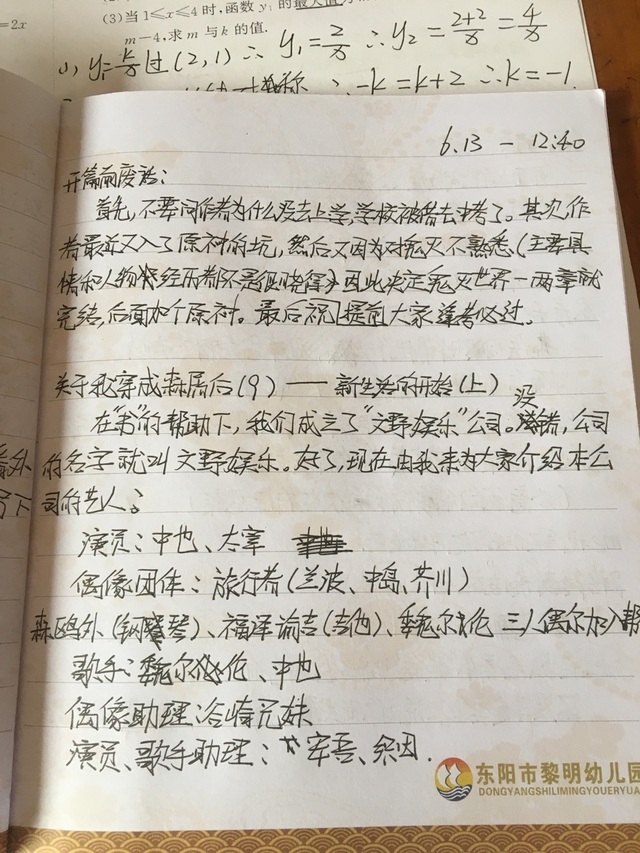 =2x
(3)当1≤x≤4时,函数y₁的最大值
m-4,求m与k的值.
过(2,1)∴y₁=2/x ∴y₂=(2+2)/x=4/x
∴-k=k+2 ∴k=-1
6.13 - 12:40
开篇前废话:
首先,不要问作者为什么没去上学,学校被借去中考了。其次,作
者最近又入了原神的坑,然后又因为对鬼灭不熟悉(主要是
情和人物经历都不是很晓得)因此决定鬼灭世界一两章就
完结,后面加个原神。最后祝提前大家逢考必过。
关于我穿成森屑后(9)——新生活的开始(上)
在"书"的帮助下,我们成立了"文野娱乐"公司。没错,公司
的名字就叫文野娱乐。好了,现在由我来为大家介绍本公
司的艺人:
演员:中也、太宰
偶像团体:旅行者(兰波、中岛、芥川)
森鸥外(钢琴)、福泽谕吉(吉他)、魏尔伦 三人偶尔加入帮
歌手:魏尔伦、中也
偶像助理:谷崎兄妹
演员、歌手助理:安吾、织田.
东阳市黎明幼儿园
DONGYANGSHILIMINGYOUERYUA